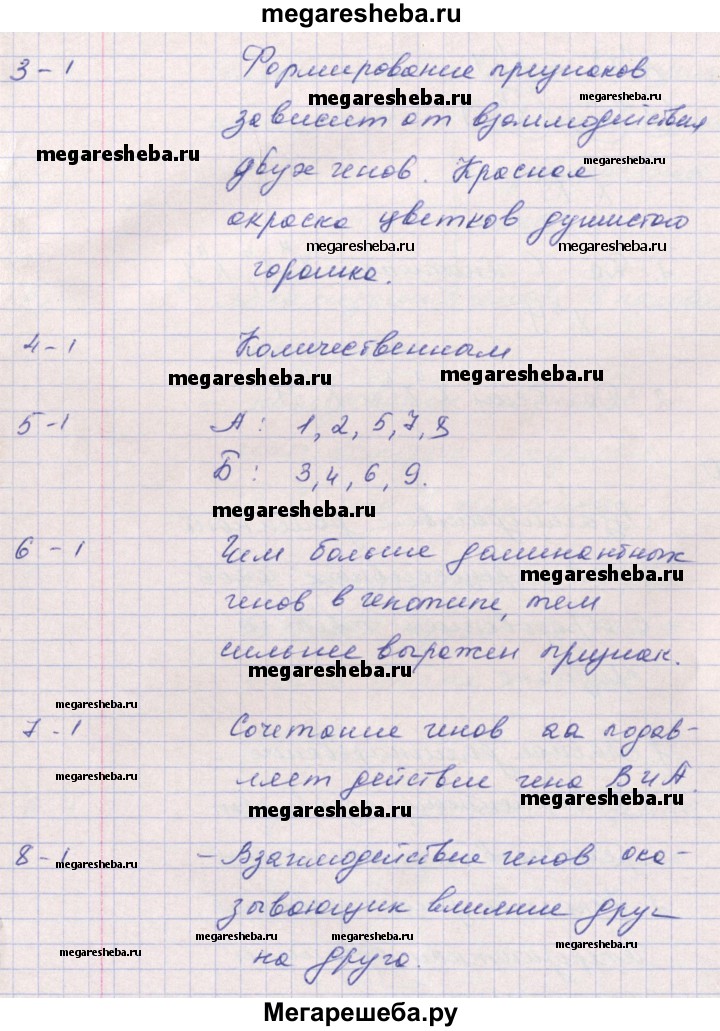 megaresheba.ru
3-1 Формирование признаков
megaresheba.ru megaresheba.ru
зависит от взаимодействия
megaresheba.ru megaresheba.ru
двух генов. Красная
окраска цветков душистого
megaresheba.ru megaresheba.ru
горошка.
4-1 Количественным
megaresheba.ru megaresheba.ru
5-1 А: 1, 2, 5, 7, 8
Б: 3, 4, 6, 9.
megaresheba.ru
6-1 Чем больше доминантных
megaresheba.ru
генов в генотипе, тем
сильнее выражен признак.
megaresheba.ru
megaresheba.ru
7-1 Сочетание генов аа подав-
megaresheba.ru ляет действие гена В и А.
megaresheba.ru megaresheba.ru
8-1 - Взаимодействие генов ока-
megaresheba.ru
зывающих влияние друг
megaresheba.ru megaresheba.ru
megaresheba.ru на друга. megaresheba.ru
Мегарешеба.ру